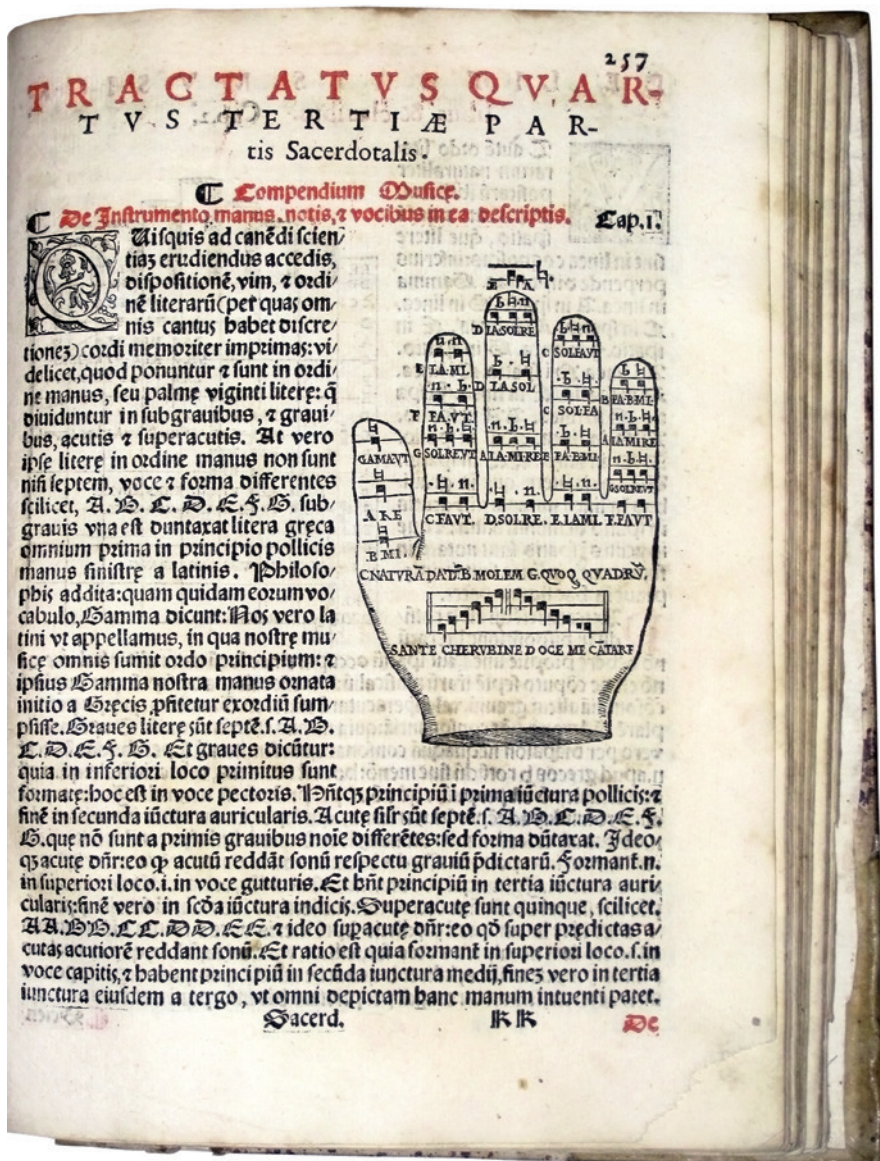 257
TRACTATVS QVAR-
TVS TERTIÆ PAR-
tis Sacerdotalis.
¶ Compendium Musicę.
¶ De Instrumento, manus, notis, ⁊ vocibus in ea descriptis. Cap.i.
QUisquis ad canẽdi scien⸗
tiaȝ erudiendus accedis,
dispositionẽ, vim, ⁊ ordi⸗
nẽ literarũ (per quas om⸗
nis cantus habet discre⸗
tioneȝ) cordi memoriter imprimas: vi⸗
delicet, quod ponuntur ⁊ sunt in ordi⸗
ne manus, seu palmę viginti literę: q̃
diuiduntur in subgrauibus, ⁊ graui⸗
bus, acutis ⁊ superacutis. At vero
ipsę literę in ordine manus non sunt
nisi septem, voce ⁊ forma differentes
scilicet, A. B. C. D. E. F. G. sub⸗
grauis vna est duntaxat litera gręca
omnium prima in principio pollicis
manus sinistrę a latinis. Philoso⸗
phis addita: quam quidam eorum vo⸗
cabulo, Gamma dicunt: Nos vero la
tini vt appellamus, in qua nostrę mu⸗
sicę omnis sumit ordo principium: ⁊
ipsius Gamma nostra manus ornata
initio a Gręcis ꝓfitetur exordiũ sum⸗
psisse. Graues literę sũt septẽ. s. A. B.
C. D. E. F. G. Et graues dicũtur:
quia in inferiori loco primitus sunt
formatę: hoc est in voce pectoris. Hñtqȝ principiũ ĩ prima iũctura pollicis: ⁊
finẽ in secunda iũctura auricularis. Acutę sil̃r sũt septẽ. s. A. B. C. D. E. F.
G. quę nõ sunt a primis grauibus noĩe differẽtes: sed forma dũtaxat. Ideo⸗
qȝ acutę dñr: eo ꝙ acutũ reddãt sonũ respectu grauiũ p̃dictarũ. Formant̃. n.
in superiori loco. i. in voce gutturis. Et hñt principiũ in tertia iũctura auri⸗
cularis: finẽ vero in scđa iũctura indicis. Superacutę sunt quinque, scilicet.
AA. BB. CC. DD. EE. ⁊ ideo suꝑacutę dñr: eo qđ super prędictas a⸗
cutas acutiorẽ reddant sonũ. Et ratio est quia formant̃ in superiori loco. s. in
voce capitis, ⁊ habent principiũ in secũda iunctura medij, fineȝ vero in tertia
iunctura eiusdem a tergo, vt omni depictam hanc manum intuenti patet.
Sacerd. KK De
E LA
D LA SOLRE
C SOLFAVT
E LA·MI
D LA SOL
B FA·B·MI
F FA.VT
C SOL·FA
A LA·MI·RE
GAMAVT
G SOLREVT
A LA·MI·RE
E FA·B·MI
G SOLREVT
A RE
C FAVT. D.SOLRE. E.LAMI. F.FAVT
B MI.
C NATVRÃ DAT. B. MOLEM G. QVOQ QVADRṼ.
SANTE CHERVBINE DOCE ME CÃTARE